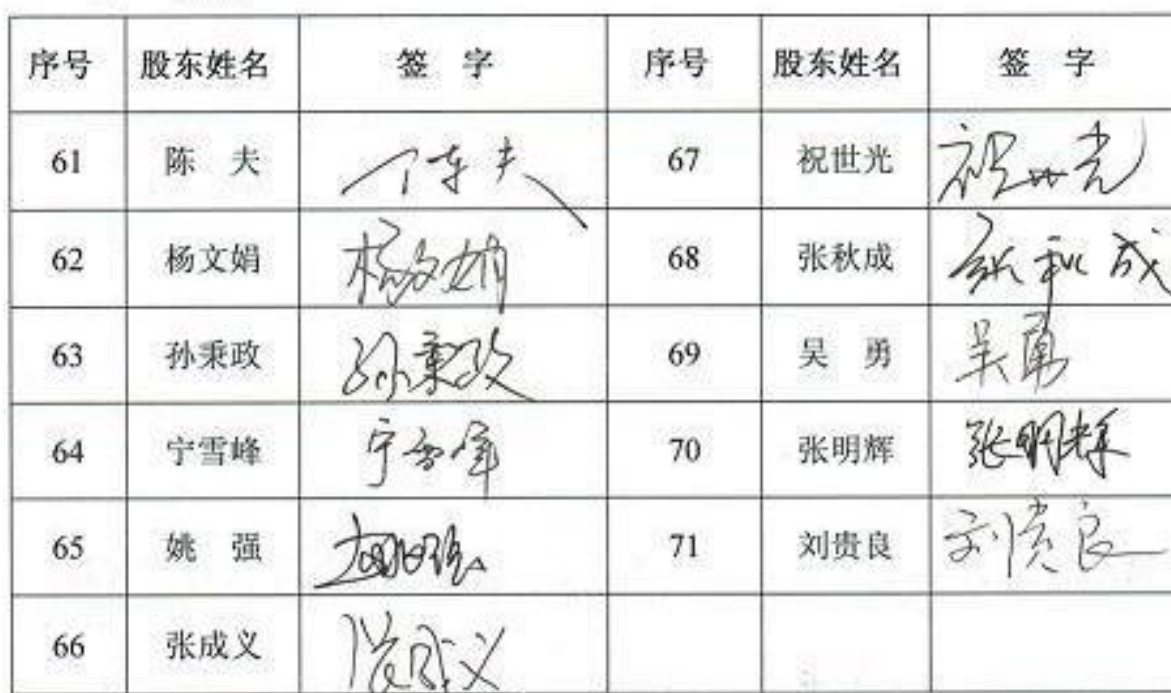 序号 股东姓名 签 字 序号 股东姓名 签 字
61 陈 夫 陈夫 67 祝世光 祝世光
62 杨文娟 杨文娟 68 张秋成 张秋成
63 孙秉政 孙秉政 69 吴 勇 吴勇
64 宁雪峰 宁雪峰 70 张明辉 张明辉
65 姚 强 姚强 71 刘贵良 刘贵良
66 张成义 张成义